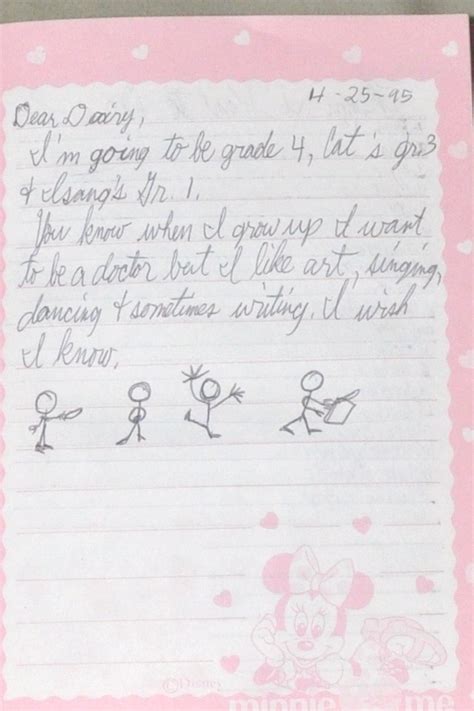 4-25-95
Dear Deairy,
I'm going to be grade 4, Cat's gr.3
& Isang's Gr. 1.
You know when I grow up I want
to be a doctor but I like art, singing,
dancing & sometimes writing. I wish
I know.
©Disney
minnie me